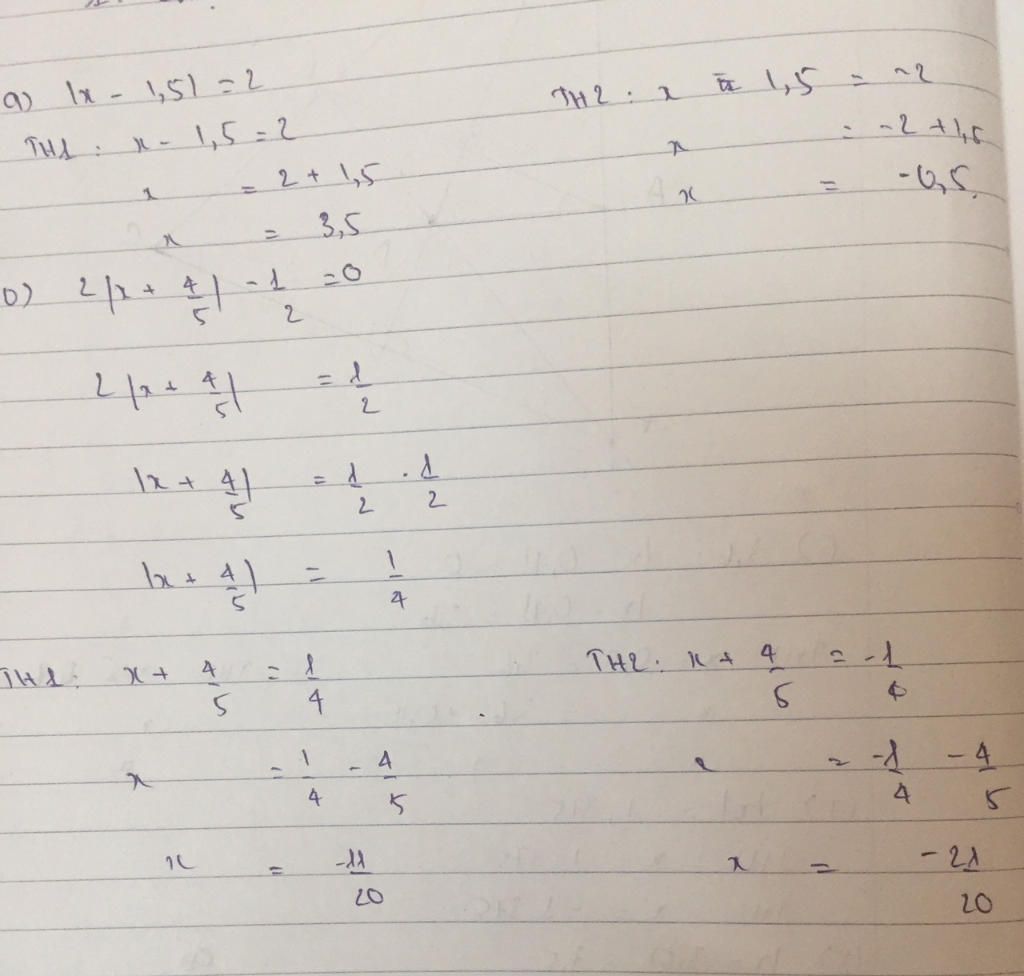 a) |x - 1,5| = 2
TH1 : x - 1,5 = 2
x = 2 + 1,5
x = 3,5
TH2 : x - 1,5 = -2
x = -2 + 1,5
x = -0,5
b) 2|x + 4/5| - 1/2 = 0
2|x + 4/5| = 1/2
|x + 4/5| = 1/2 . 1/2
|x + 4/5| = 1/4
TH1 : x + 4/5 = 1/4
x = 1/4 - 4/5
x = -11/20
TH2 : x + 4/5 = -1/4
x = -1/4 - 4/5
x = -21/20